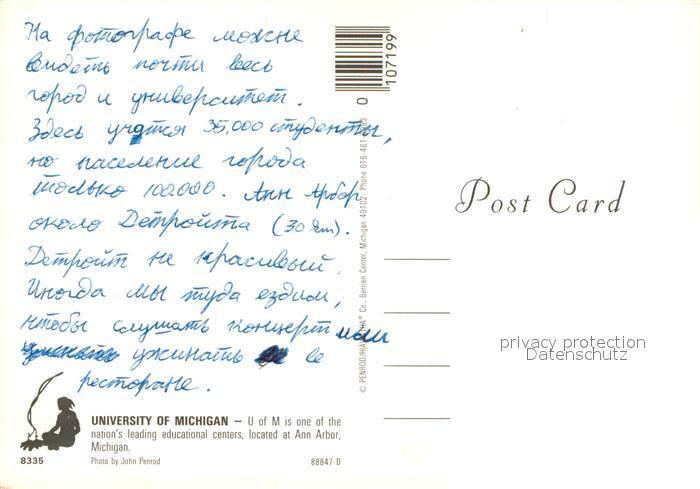 На фотографе можне
видеть почти весь
город и университет.
Здесь учатся 35,000 студенты,
но население города
только 100.000. Анн Арбор
около Детройта (30 km).
Детройт не красивый.
Иногда мы туда ездим,
чтобы слушать концерт или
ужинать в
ресторане.
UNIVERSITY OF MICHIGAN – U of M is one of the
nation's leading educational centers, located at Ann Arbor,
Michigan.
8335 Photo by John Penrod 88847-D
0 107199
© PENROD/HIAWATHA® Co., Berrien Center, Michigan 49102 Phone 616-461-
Post Card
privacy protection
Datenschutz